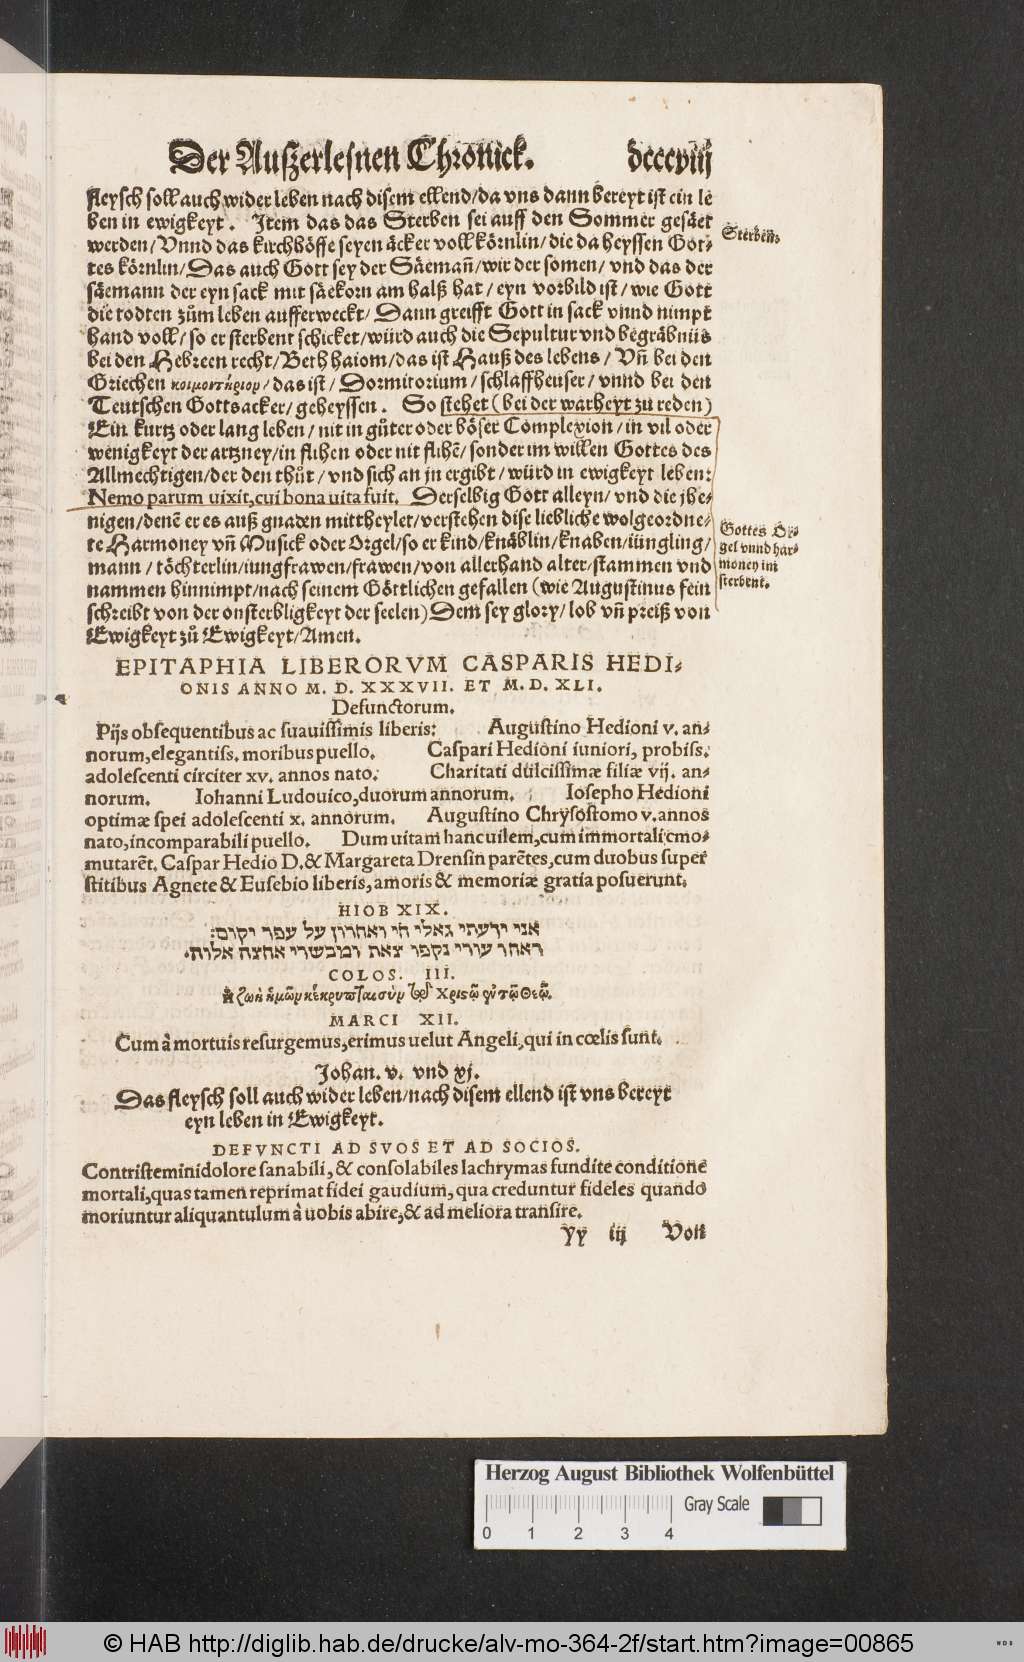 Der Außerlesnen Chronick. dccccviij
fleysch soll auch wider leben nach disem ellend/da vns dann bereyt ist ein le
ben in ewigkeyt. Item das das Sterben sei auff den Sommer gesäet
werden/Vnnd das kirchhöffe seyen äcker voll körnlin/die da heyssen Got-
tes körnlin/Das auch Gott sey der Säemañ/wir der somen/vnd das der
säemann der eyn sack mit säekorn am halß hat/eyn vorbild ist/wie Gott
die todten zům leben aufferweckt/Dann greifft Gott in sack vnnd nimpt
hand voll/so er sterbent schicket/würd auch die Sepultur vnd begräbnüs
bei den Hebreen recht/Beth haiom/das ist Hauß des lebens/Vñ bei den
Griechen κοιμοντήριον/das ist/Dormitorium/schlaffheuser/vnnd bei den
Teutschen Gottsacker/geheyssen. So stehet (bei der warheyt zů reden)
Ein kurtz oder lang leben/nit in gůter oder böser Complexion/in vil oder
wenigkeyt der artzney/in flihen oder nit flihē/sonder im willen Gottes des
Allmechtigen/der den thůt/vnd sich an jn ergibt/würd in ewigkeyt leben:
Nemo parum uixit, cui bona uita fuit. Derselbig Gott alleyn/vnd die jhe-
nigen/denē er es auß gnaden mittheylet/verstehen dise liebliche wolgeordne-
te Harmoney vñ Musick oder Orgel/so er kind/knäblin/knaben/iüngling/
mann/töchterlin/iungfrawen/frawen/von allerhand alter/stammen vnd
nammen hinnimpt/nach seinem Göttlichen gefallen (wie Augustinus fein
schreibt von der onsterbligkeyt der seelen) Dem sey glory/lob vñ preiß von
Ewigkeyt zů Ewigkeyt/Amen.
Sterben.
Gottes Or-
gel vnnd har-
money im
sterbent.
EPITAPHIA LIBERORVM CASPARIS HEDI-
ONIS ANNO M. D. XXXVII. ET M. D. XLI.
Defunctorum.
Pijs obsequentibus ac suauissimis liberis: Augustino Hedioni v. an-
norum, elegantiss. moribus puello. Caspari Hedioni iuniori, probiss.
adolescenti circiter xv. annos nato. Charitati dulcissimæ filiæ vij. an-
norum. Iohanni Ludouico, duorum annorum. Iosepho Hedioni
optimæ spei adolescenti x. annorum. Augustino Chrysostomo v. annos
nato, incomparabili puello. Dum uitam hanc uilem, cum immortali cmo-
mutarēt. Caspar Hedio D. & Margareta Drensin parētes, cum duobus super
stitibus Agnete & Eusebio liberis, amoris & memoriæ gratia posuerunt.
HIOB XIX.
אני ידעתי גאלי חי ואחרון על עפר יקום:
ואחר עורי נקפו צאת ומבשרי אחצה אלוה.
COLOS. III.
Ἡ ζωὴ ἡμῶν κέκρυπται σὺν τῷ Χριστῷ ἐν τῷ Θεῷ.
MARCI XII.
Cum à mortuis resurgemus, erimus uelut Angeli, qui in cœlis sunt.
Johan. v. vnd xj.
Das fleysch soll auch wider leben/nach disem ellend ist vns bereyt
eyn leben in Ewigkeyt.
DEFVNCTI AD SVOS ET AD SOCIOS.
Contristemini dolore sanabili, & consolabiles lachrymas fundite conditione
mortali, quas tamen reprimat fidei gaudium, qua creduntur fideles quando
moriuntur aliquantulum à uobis abire, & ad meliora transire.
Yy iij Voll
Herzog August Bibliothek Wolfenbüttel
0 1 2 3 4 Gray Scale
© HAB http://diglib.hab.de/drucke/alv-mo-364-2f/start.htm?image=00865